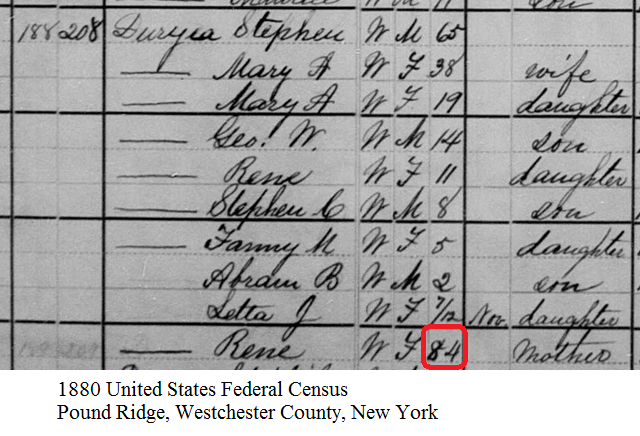 188 208 Duryea Stephen W M 65
Mary A W F 38 wife
Mary A W F 19 daughter
Geo. W. W M 14 son
Rene W F 11 daughter
Stephen C W M 8 son
Fanny M W F 5 daughter
Abram B W M 2 son
Letta J W F 7/12 Nov. daughter
Rene W F 84 Mother
1880 United States Federal Census
Pound Ridge, Westchester County, New York